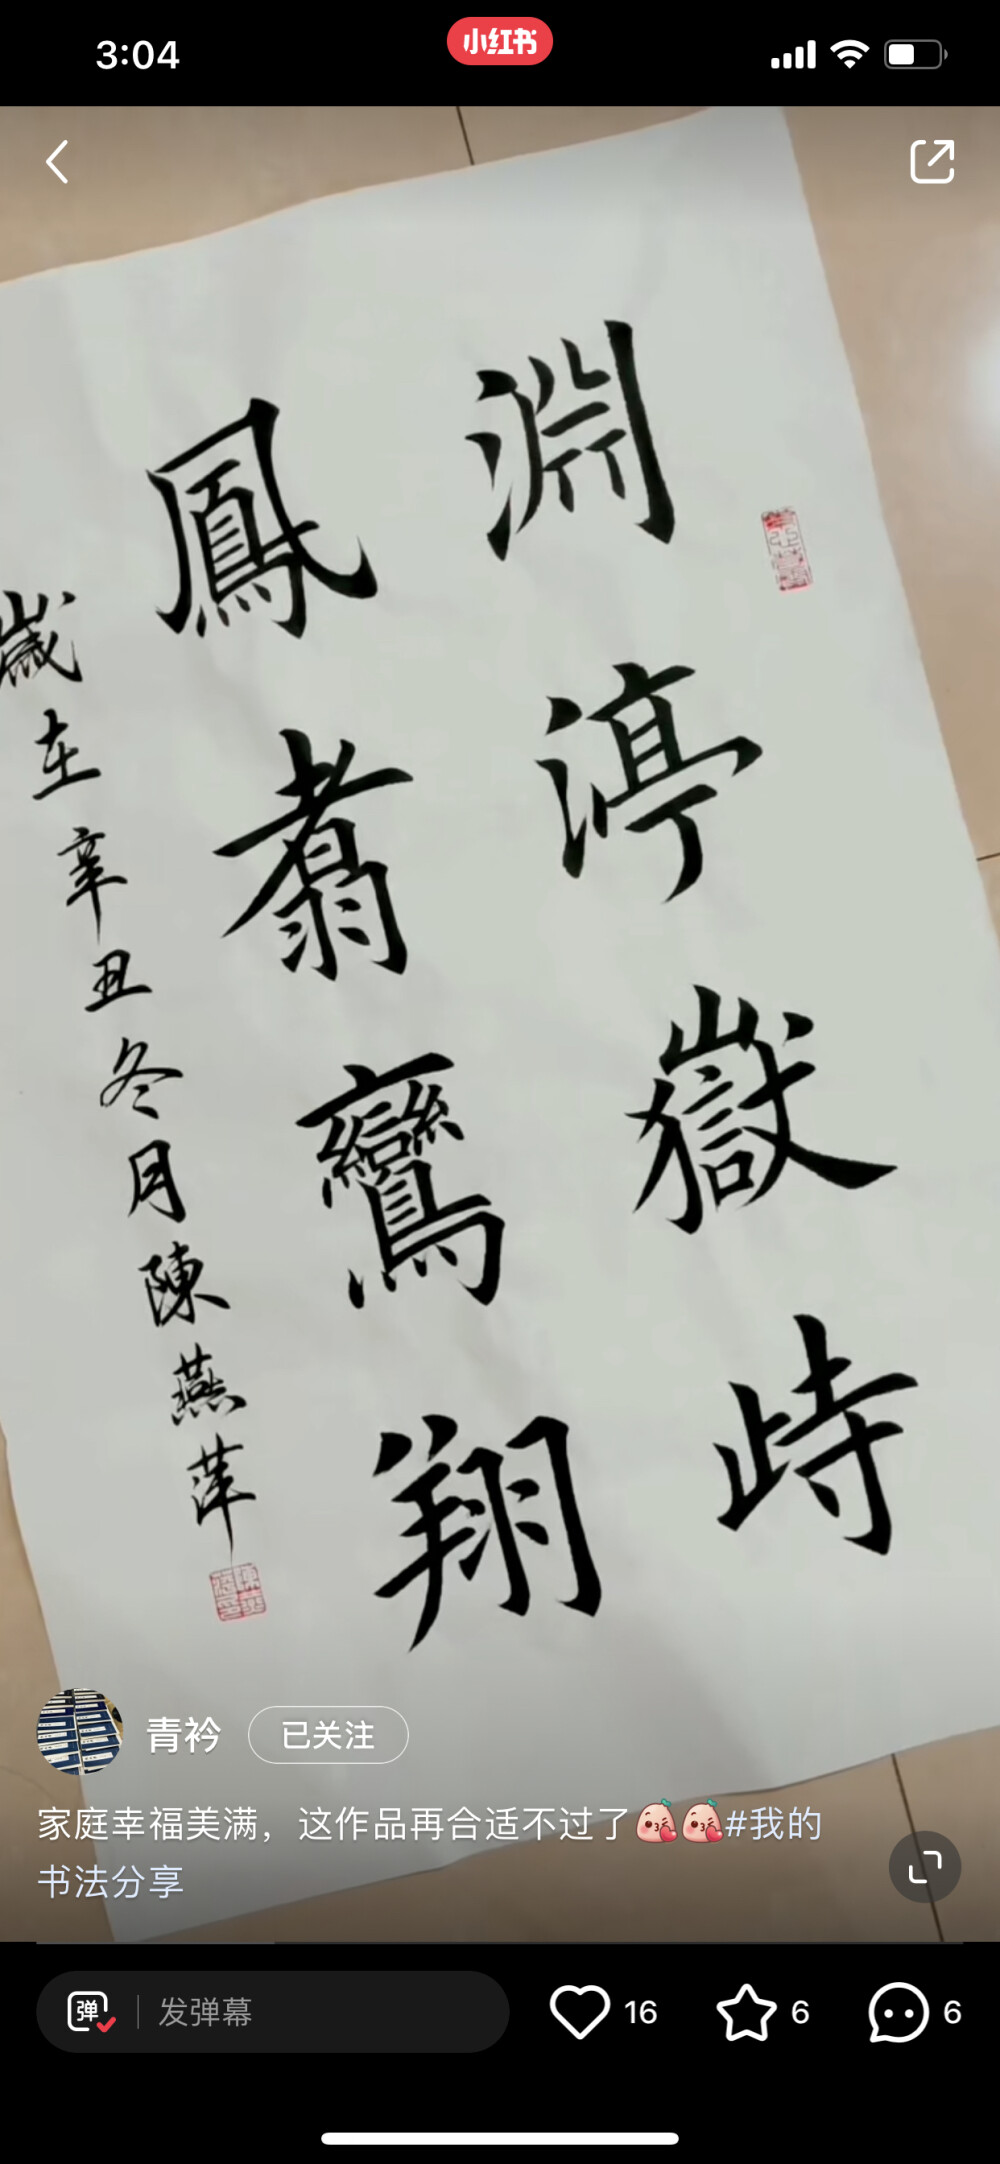 3:04
小红书
淵渟嶽峙
鳳翥鸞翔
歲在辛丑冬月陳燕萍
青衿
已关注
家庭幸福美满，这作品再合适不过了#我的
书法分享
弹
发弹幕
16
6
6